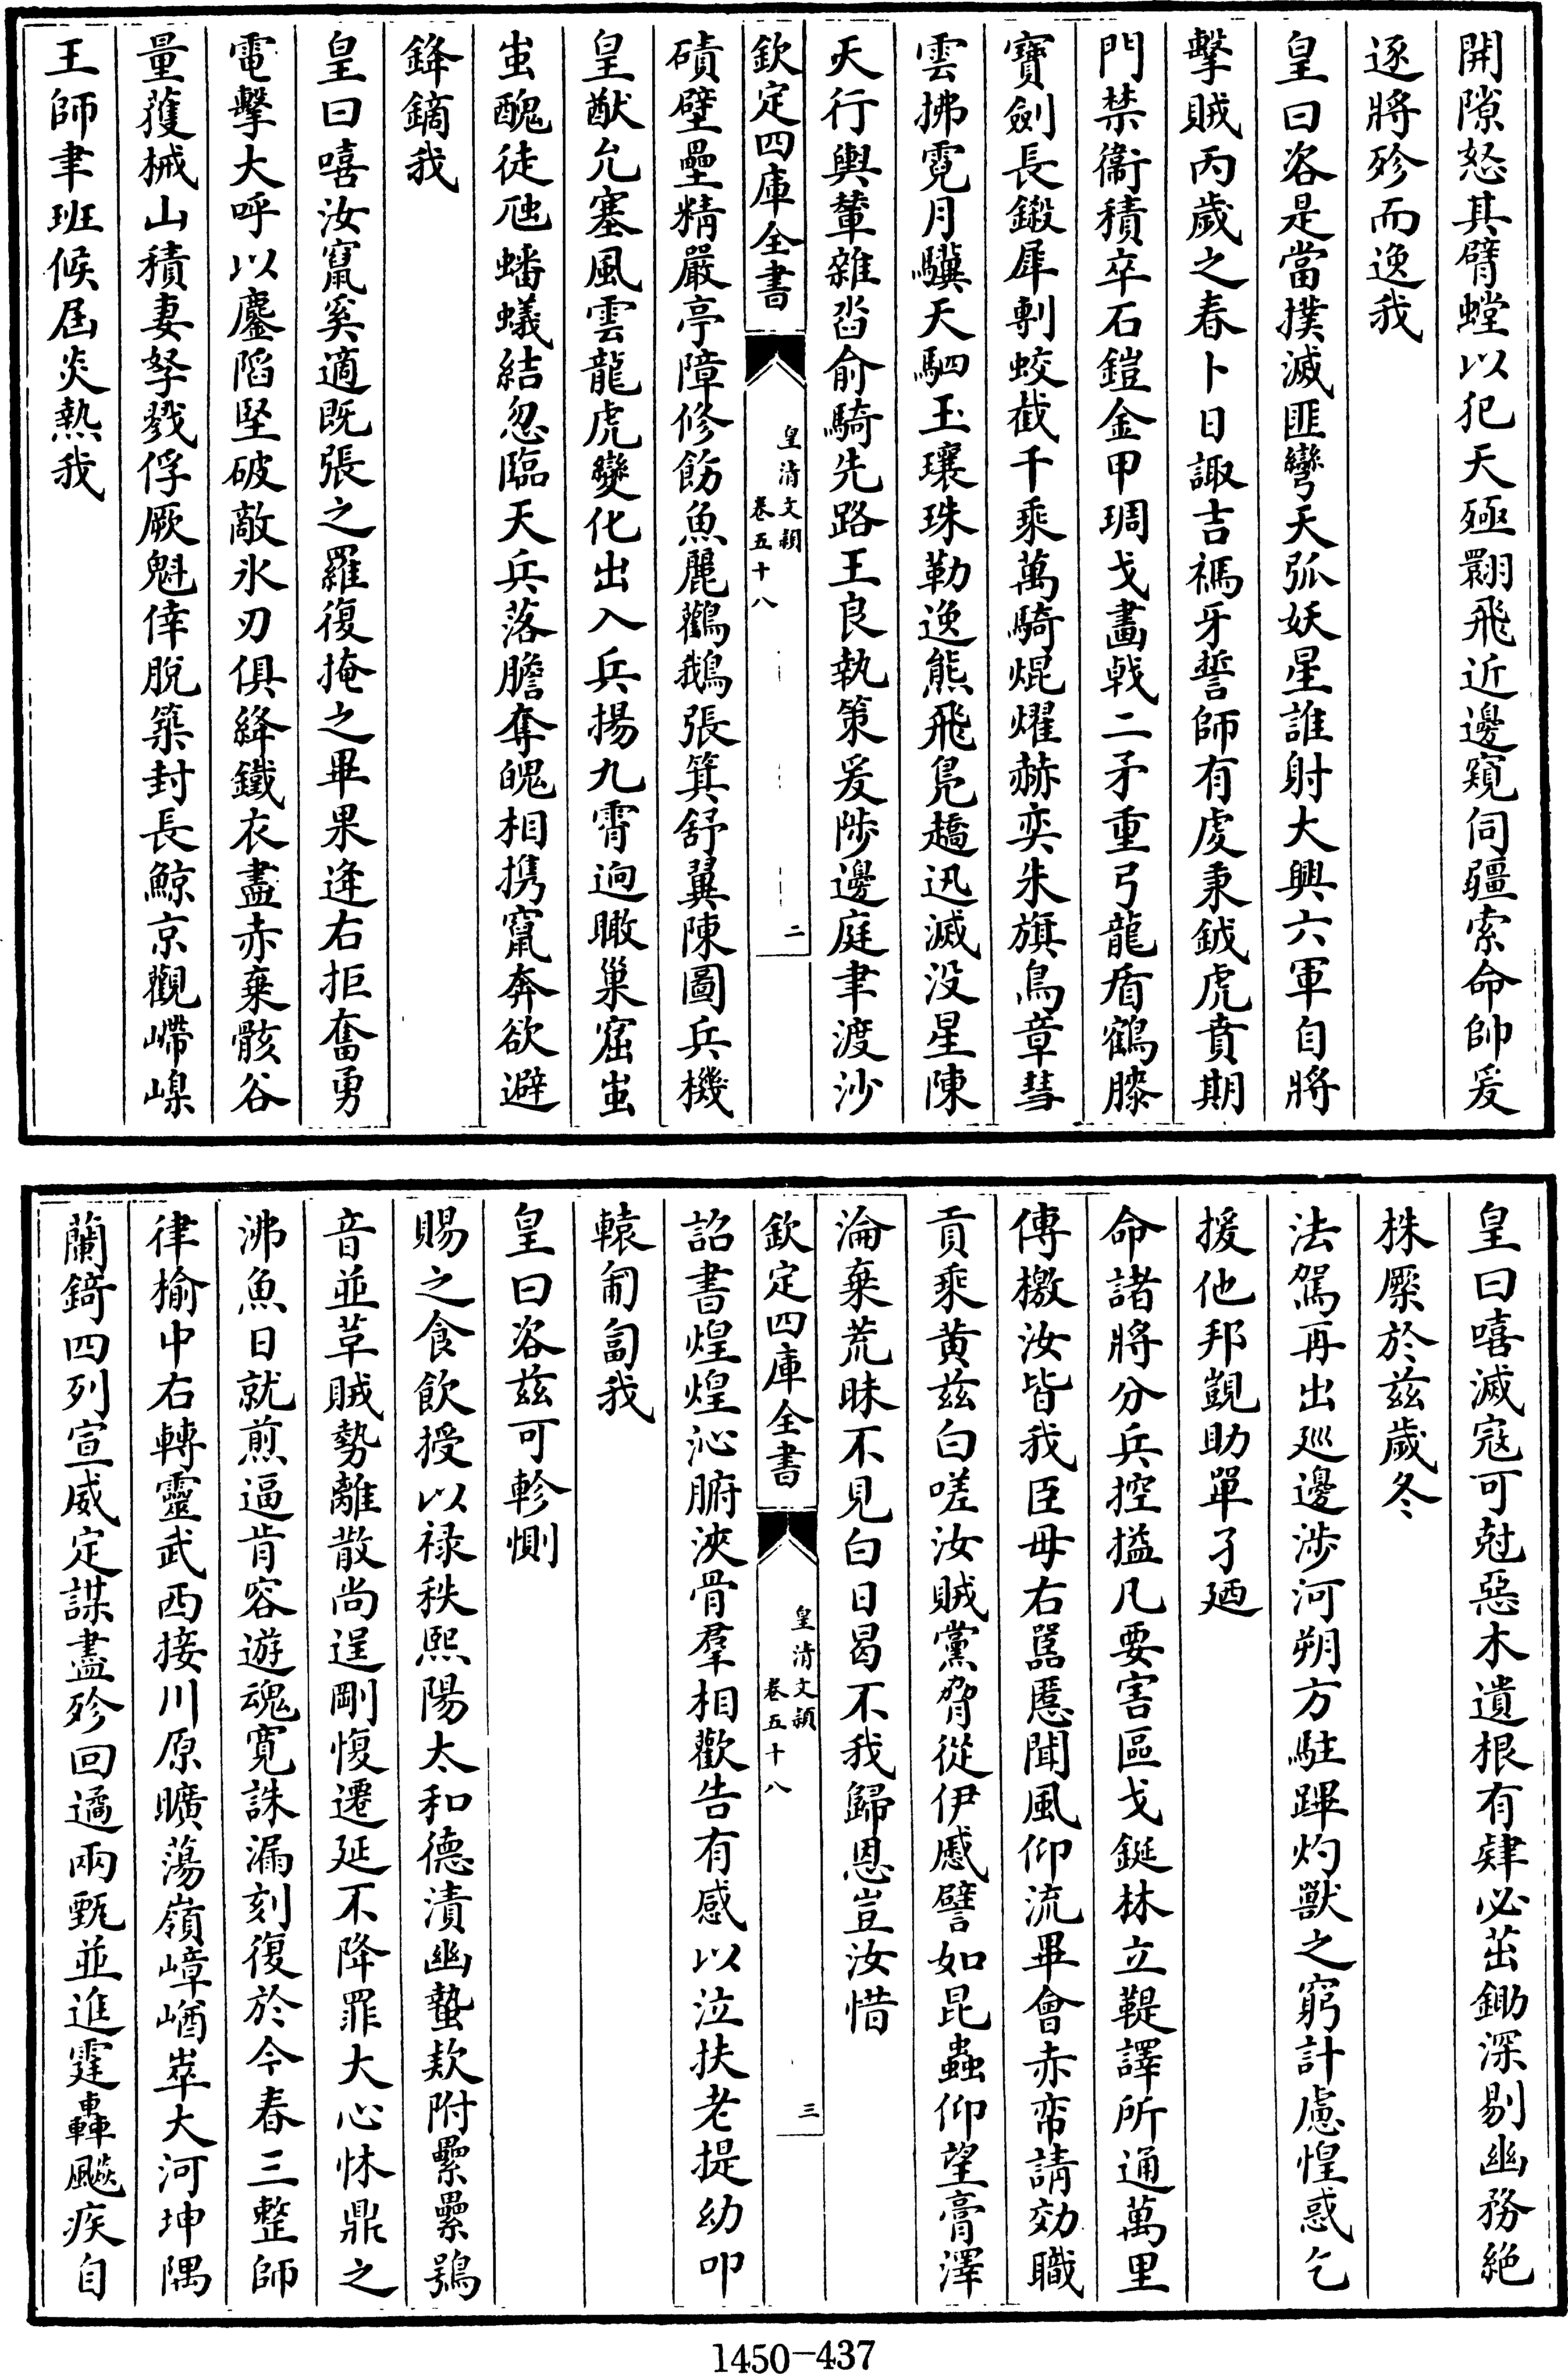 開隙怒其臂螳以犯天殛翾飛近邊窺伺疆索命帥爰
逐將殄而逸我
皇曰咨是當撲滅匪彎天弧妖星誰射大興六軍自將
擊賊丙歲之春卜日諏吉禡牙誓師有虔秉鉞虎賁期
門禁衞積卒石鎧金甲琱戈畫戟二矛重弓龍盾鶴膝
寶劍長鍛犀剸蛟截千乘萬騎焜燿赫奕朱旗鳥章彗
雲拂霓月驥天駟玉瓖珠勒逸熊飛鳧趫迅滅没星陳
天行輿輦雜沓俞騎先路王良執策爰陟邊庭聿渡沙
欽定四庫全書
皇清文穎
卷五十八
二
磧壁壘精嚴亭障修飭魚麗鸛鵝張箕舒翼陳圖兵機
皇猷允塞風雲龍虎變化出入兵揚九霄逈瞰巢窟蚩
蚩醜徒虺蟠蟻結忽臨天兵落膽奪魄相携竄奔欲避
鋒鏑我
皇曰嘻汝竄奚適既張之羅復掩之畢果逢右拒奮勇
電擊大呼以鏖陷堅破敵氷刃俱絳鐵衣盡赤棄骸谷
量獲械山積妻孥戮俘厥魁倖脫築封長鯨京觀嵽嵲
王師聿班候屆炎熱我
皇曰嘻滅寇可尅惡木遺根有肄必茁鋤深剔幽務絶
株橜於兹歲冬
法駕再出廵邊涉河朔方駐蹕灼獸之窮計慮惶惑乞
援他邦覬助單孑廼
命諸將分兵控搤凡要害區戈鋋林立鞮譯所通萬里
傳檄汝皆我臣毋右嚚慝聞風仰流畢會赤帟請効職
貢乘黄兹白嗟汝賊黨脅從伊慼譬如昆蟲仰望膏澤
淪棄荒昧不見白日曷不我歸恩豈汝惜
欽定四庫全書
皇清文穎
卷五十八
三
詔書煌煌沁腑浹骨羣相歡告有感以泣扶老提幼叩
轅匍匐我
皇曰咨兹可軫惻
賜之食飲授以禄秩熙陽太和德漬幽蟄欵附纍纍鴞
音並革賊勢離散尚逞剛愎遷延不降罪大心怵鼎之
沸魚日就煎逼肯容遊魂寛誅漏刻復於今春三整師
律榆中右轉靈武西接川原曠蕩嶺嶂崷崒大河坤隅
蘭錡四列宣威定謀盡殄回遹兩甄並進霆轟飈疾自
1450-437